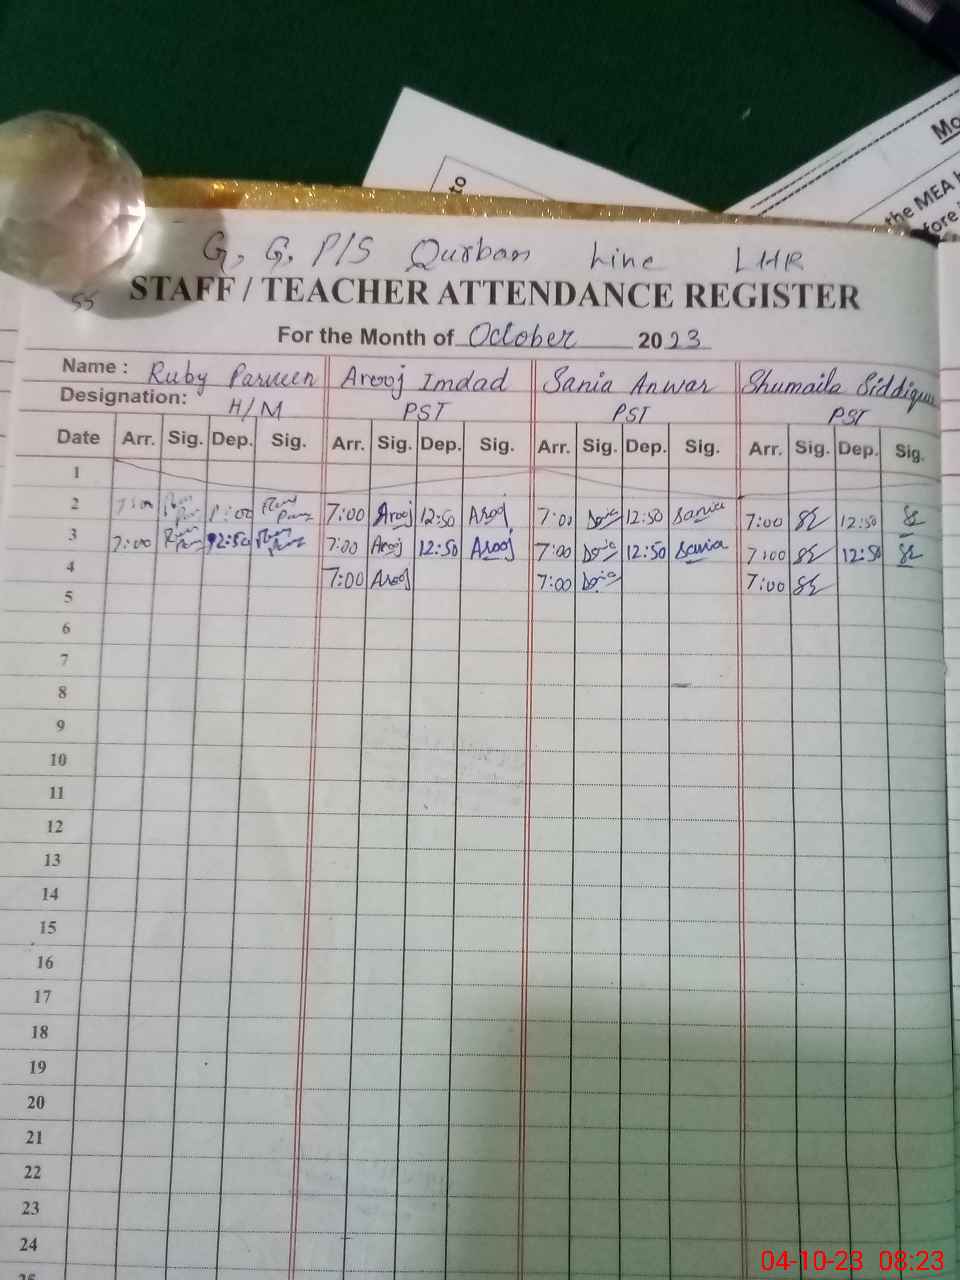 Mo
to
the MEA
fore
G, G, P/S Qurban Line LHR
55
STAFF / TEACHER ATTENDANCE REGISTER
For the Month of October 2023
Name : Ruby Parveen Arooj Imdad Sania Anwar Shumaila Siddique
Designation: H/M PST PST PST
Date Arr. Sig. Dep. Sig. Arr. Sig. Dep. Sig. Arr. Sig. Dep. Sig. Arr. Sig. Dep. Sig.
1
2 7:00 1:00 7:00 Arooj 12:50 Arooj 7:00 12:50 Sania 7:00 12:50
3 7:00 12:50 7:00 Arooj 12:50 Arooj 7:00 12:50 Sania 7:00 12:50
4 7:00 Arooj 7:00 7:00
5
6
7
8
9
10
11
12
13
14
15
16
17
18
19
20
21
22
23
24
25
04-10-23 08:23